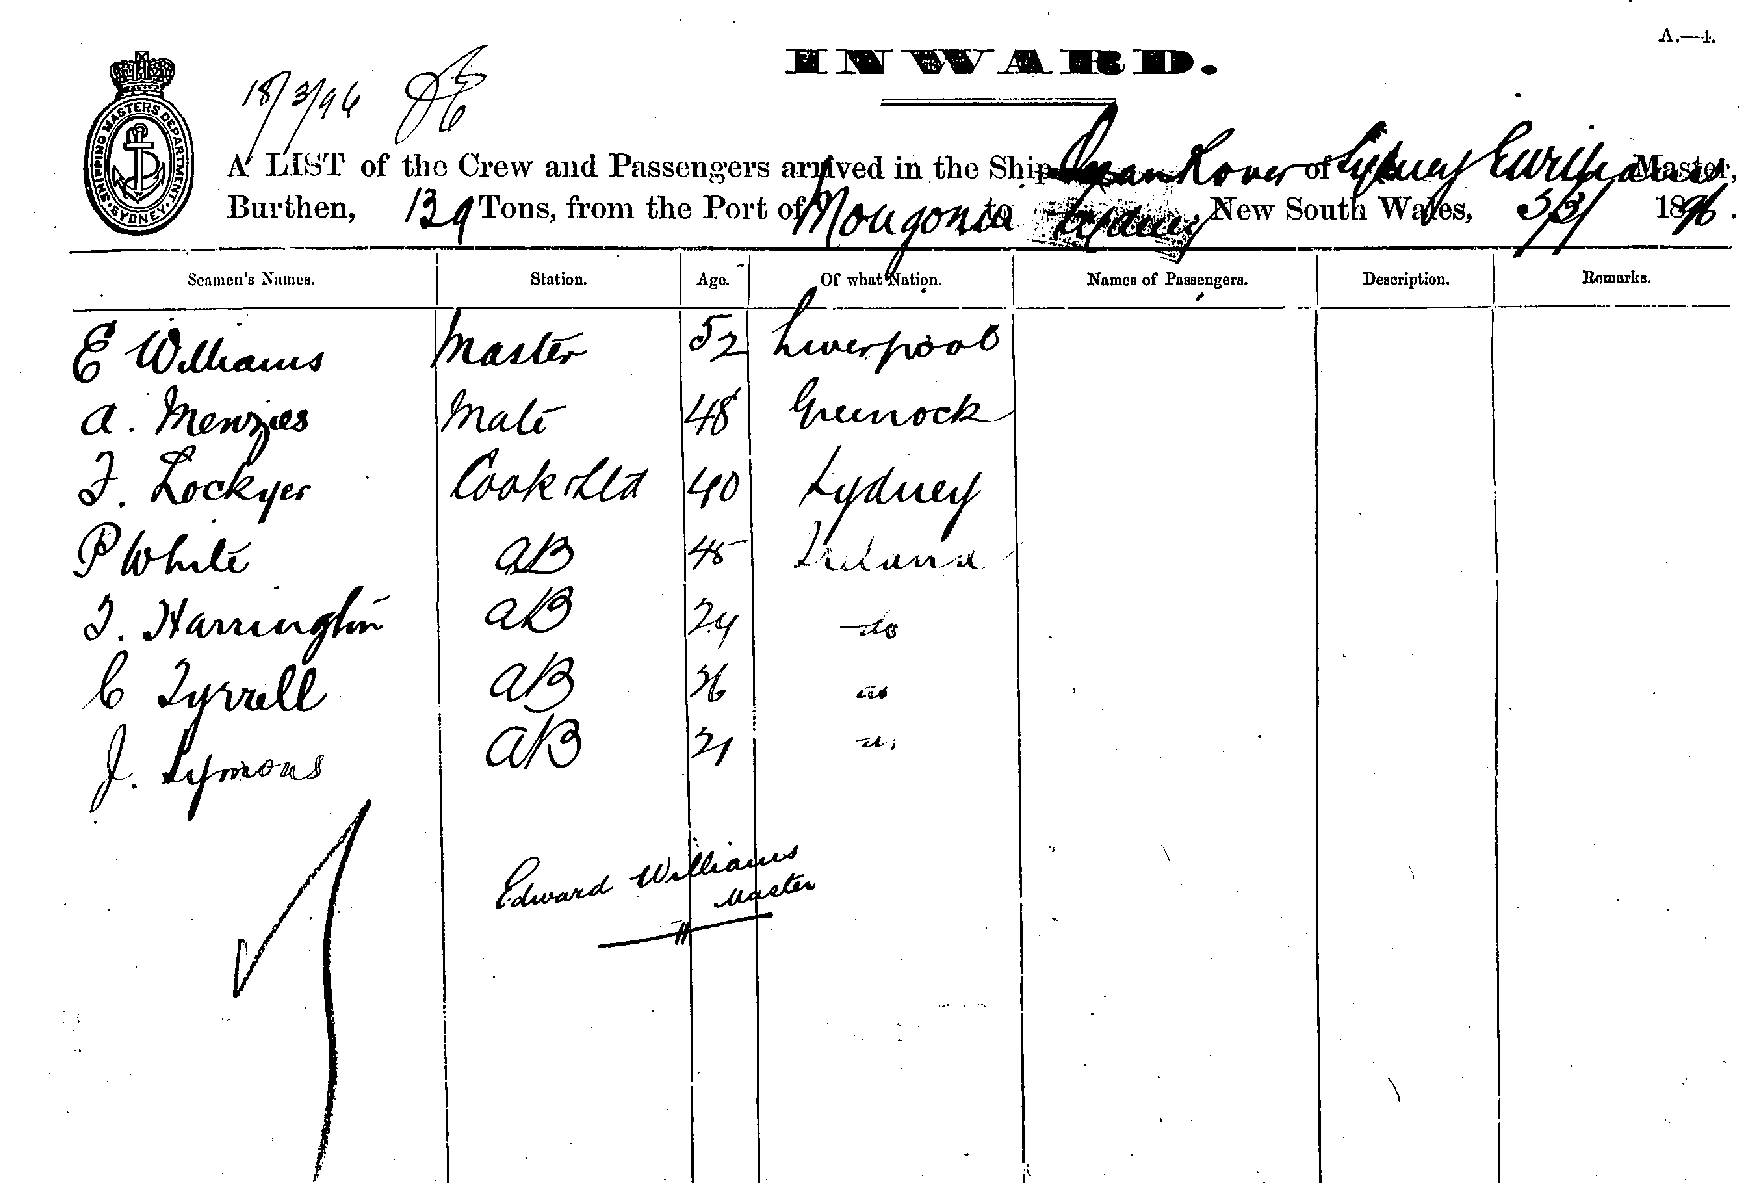 A.—4.
INWARD.
18/3/96
SHIPPING MASTERS DEPARTMENT. SYDNEY.
A LIST of the Crew and Passengers arrived in the Ship Ocean Rover of Sydney E Williams Master,
Burthen, 139 Tons, from the Port of Mongonui to Sydney New South Wales, 1896.
Seamen's Names. Station. Age. Of what Nation. Names of Passengers. Description. Remarks.
E Williams Master 52 Liverpool
A. Menzies Mate 48 Greenock
F. Lockyer Cook & Std 40 Sydney
P White AB 45 Ireland
T. Harrington AB 24 do
C Tyrrell AB 26 do
J. Symons AB 21 do
Edward Williams
Master